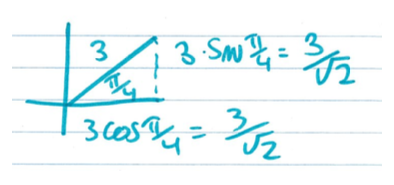 3
π/4
3·sin π/4 = 3/√2
3cos π/4 = 3/√2